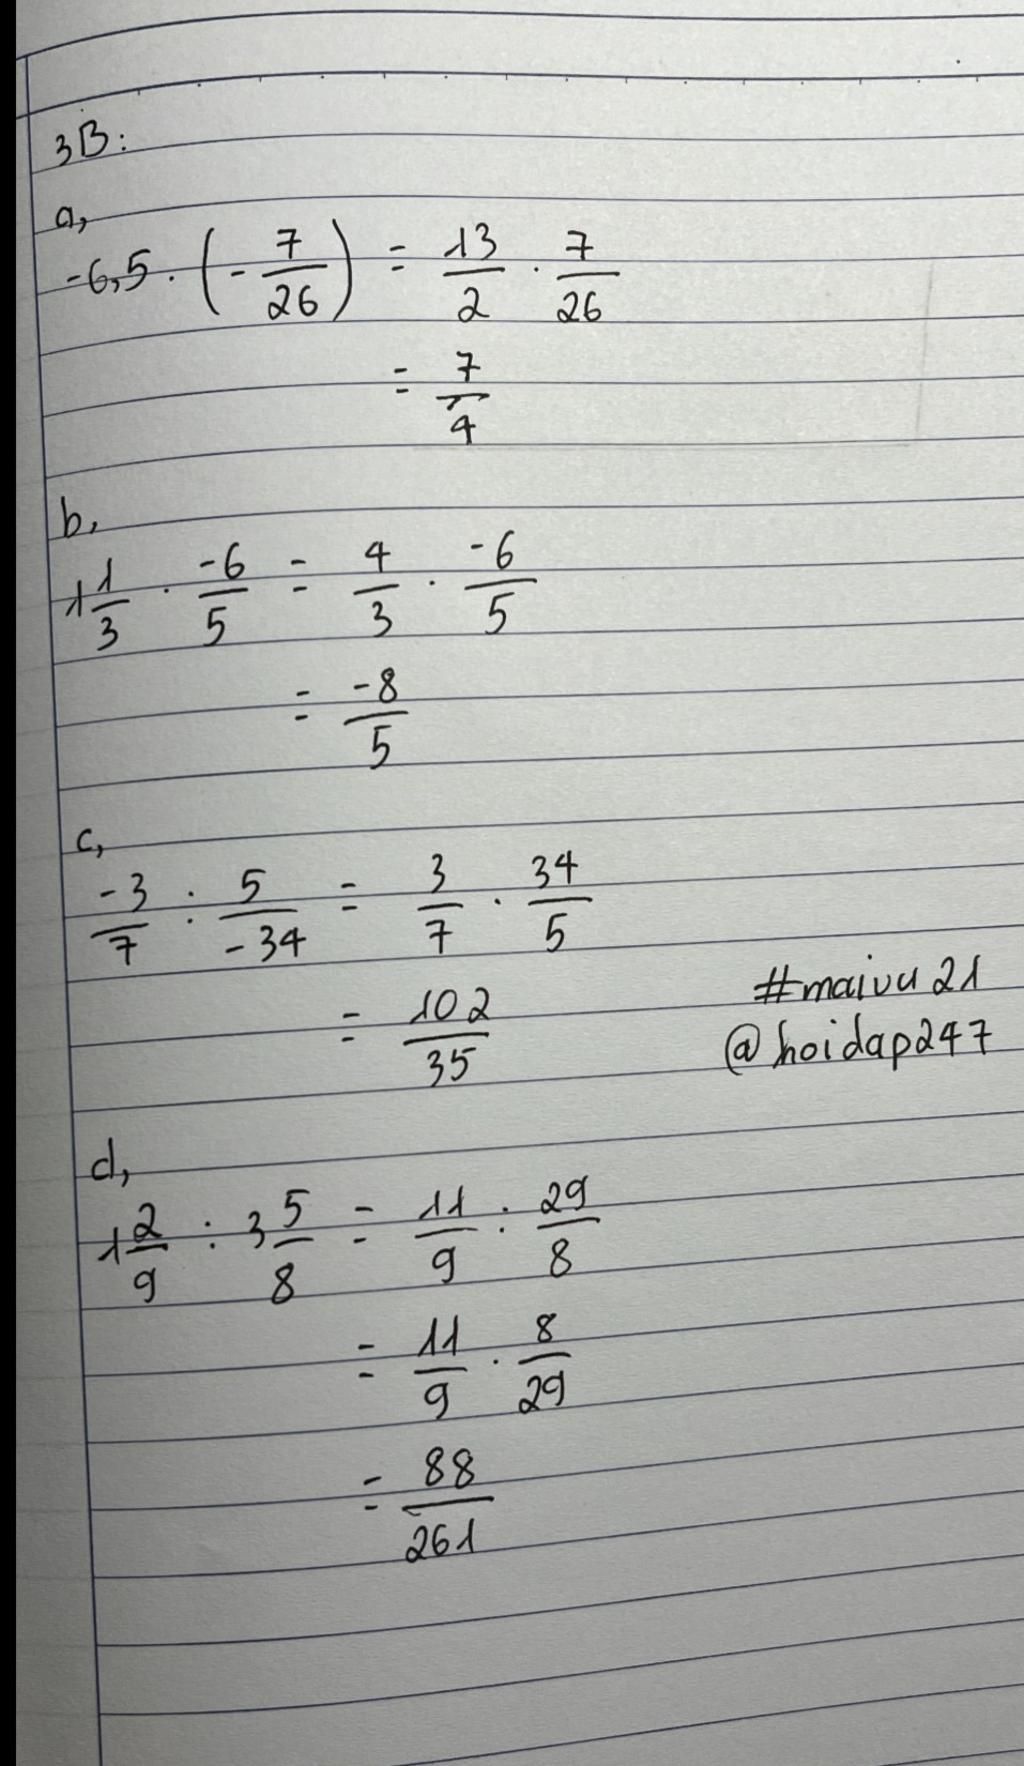 3B:
a,
-6,5 . (- 7/26) = 13/2 . 7/26
= 7/4
b,
1 1/3 . -6/5 = 4/3 . -6/5
= -8/5
c,
-3/7 : 5/-34 = 3/7 . 34/5
= 102/35
#maivu21
@hoidap247
d,
1 2/9 : 3 5/8 = 11/9 : 29/8
= 11/9 . 8/29
= 88/261